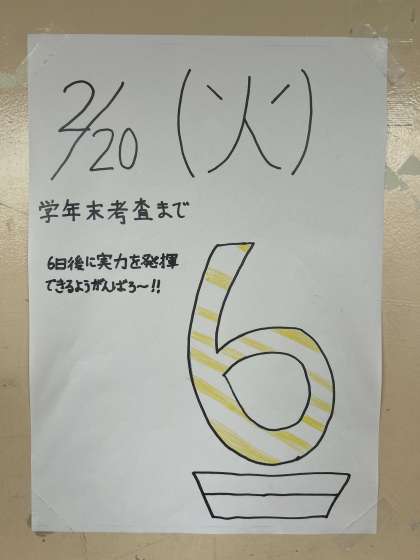 2/20 (火)
学年末考査まで
6日後に実力を発揮
できるようがんばろ〜!!
6